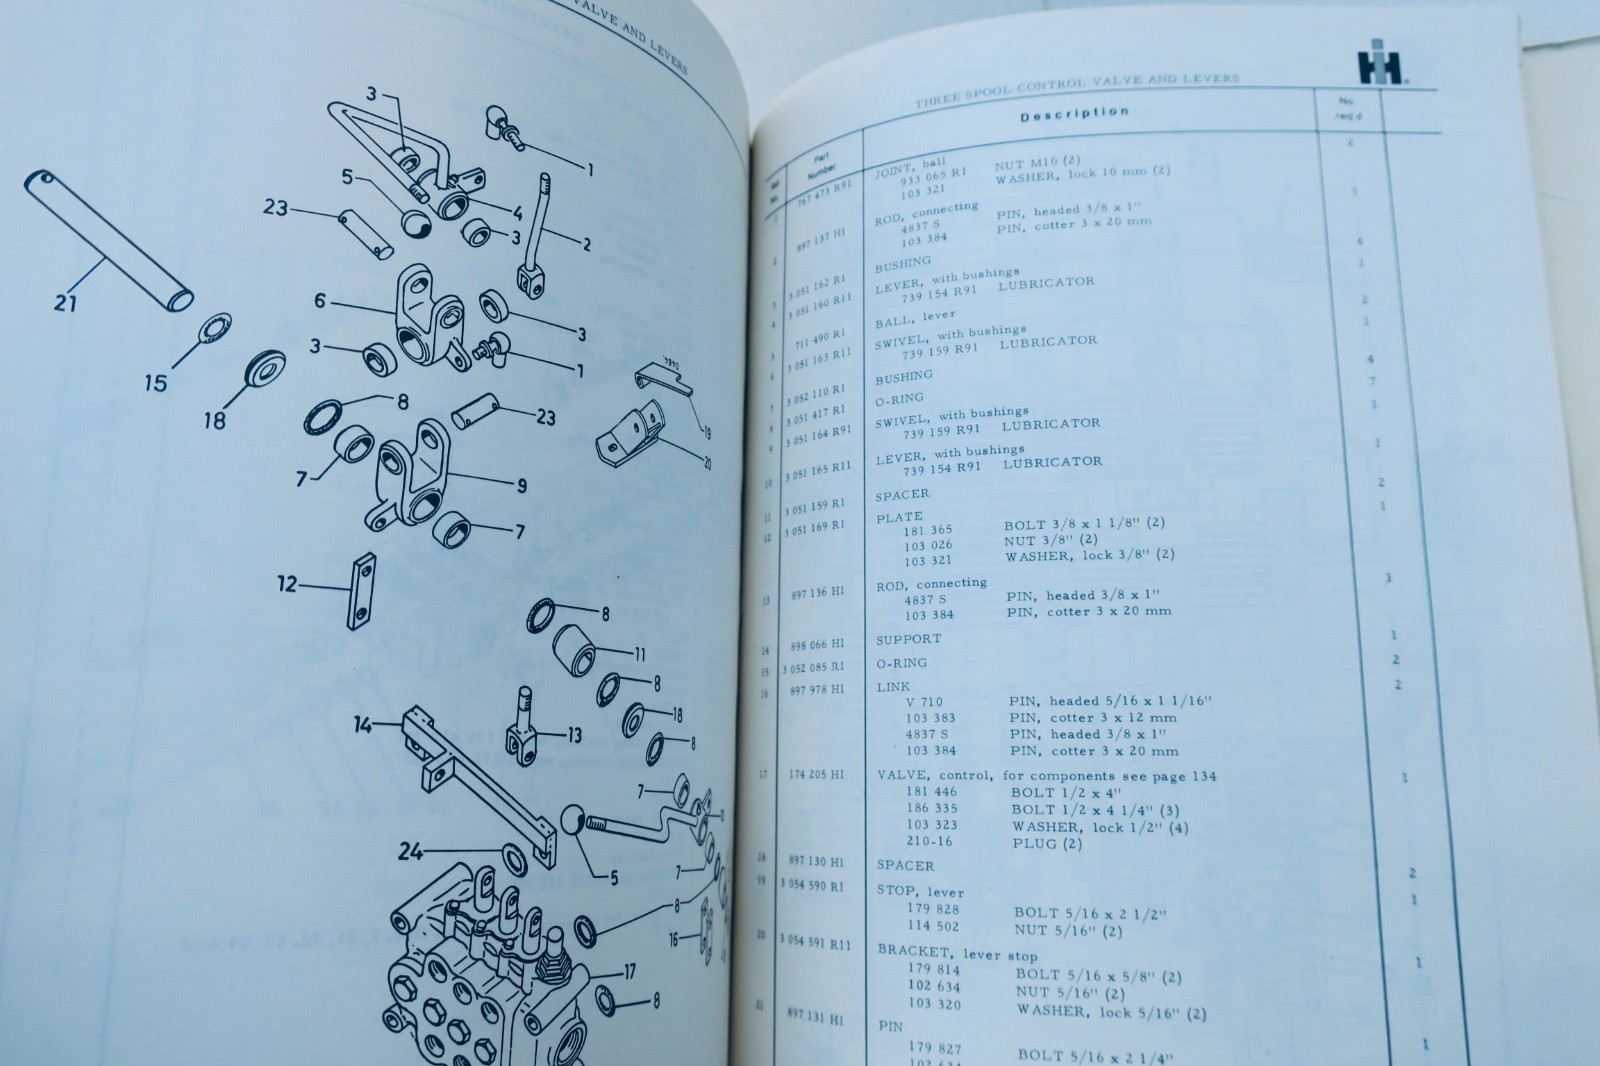 VALVE AND LEVERS
3
1
5
4
23
3
2
21
6
3
3
1
15
18
8
23
19
20
7
9
7
12
8
11
8
14
13
18
8
7
10
24
5
7
8
16
17
8
IH
THREE SPOOL CONTROL VALVE AND LEVERS
Ref. No. Part Number Description No. req'd
1 767 473 R91 JOINT, ball 2
933 065 R1 NUT M10 (2)
103 321 WASHER, lock 10 mm (2)
2 897 137 H1 ROD, connecting 1
4837 S PIN, headed 3/8 x 1"
103 384 PIN, cotter 3 x 20 mm
3 3 051 162 R1 BUSHING 4
4 3 051 160 R11 LEVER, with bushings 1
739 154 R91 LUBRICATOR
5 711 490 R1 BALL, lever 2
6 3 051 163 R11 SWIVEL, with bushings 1
739 159 R91 LUBRICATOR
7 3 052 110 R1 BUSHING 4
8 3 051 417 R1 O-RING 7
9 3 051 164 R91 SWIVEL, with bushings 1
739 159 R91 LUBRICATOR
10 3 051 165 R11 LEVER, with bushings 1
739 154 R91 LUBRICATOR
11 3 051 159 R1 SPACER 2
12 3 051 169 R1 PLATE 1
181 365 BOLT 3/8 x 1 1/8" (2)
103 026 NUT 3/8" (2)
103 321 WASHER, lock 3/8" (2)
13 897 136 H1 ROD, connecting 1
4837 S PIN, headed 3/8 x 1"
103 384 PIN, cotter 3 x 20 mm
14 898 066 H1 SUPPORT 1
15 3 052 085 R1 O-RING 2
16 897 978 H1 LINK 2
V 710 PIN, headed 5/16 x 1 1/16"
103 383 PIN, cotter 3 x 12 mm
4837 S PIN, headed 3/8 x 1"
103 384 PIN, cotter 3 x 20 mm
17 174 205 H1 VALVE, control, for components see page 134 1
181 446 BOLT 1/2 x 4"
186 335 BOLT 1/2 x 4 1/4" (3)
103 323 WASHER, lock 1/2" (4)
210-16 PLUG (2)
18 897 130 H1 SPACER 2
19 3 054 590 R1 STOP, lever 1
179 828 BOLT 5/16 x 2 1/2"
114 502 NUT 5/16" (2)
20 3 054 591 R11 BRACKET, lever stop 1
179 814 BOLT 5/16 x 5/8" (2)
102 634 NUT 5/16" (2)
103 320 WASHER, lock 5/16" (2)
21 897 131 H1 PIN 1
179 827 BOLT 5/16 x 2 1/4"